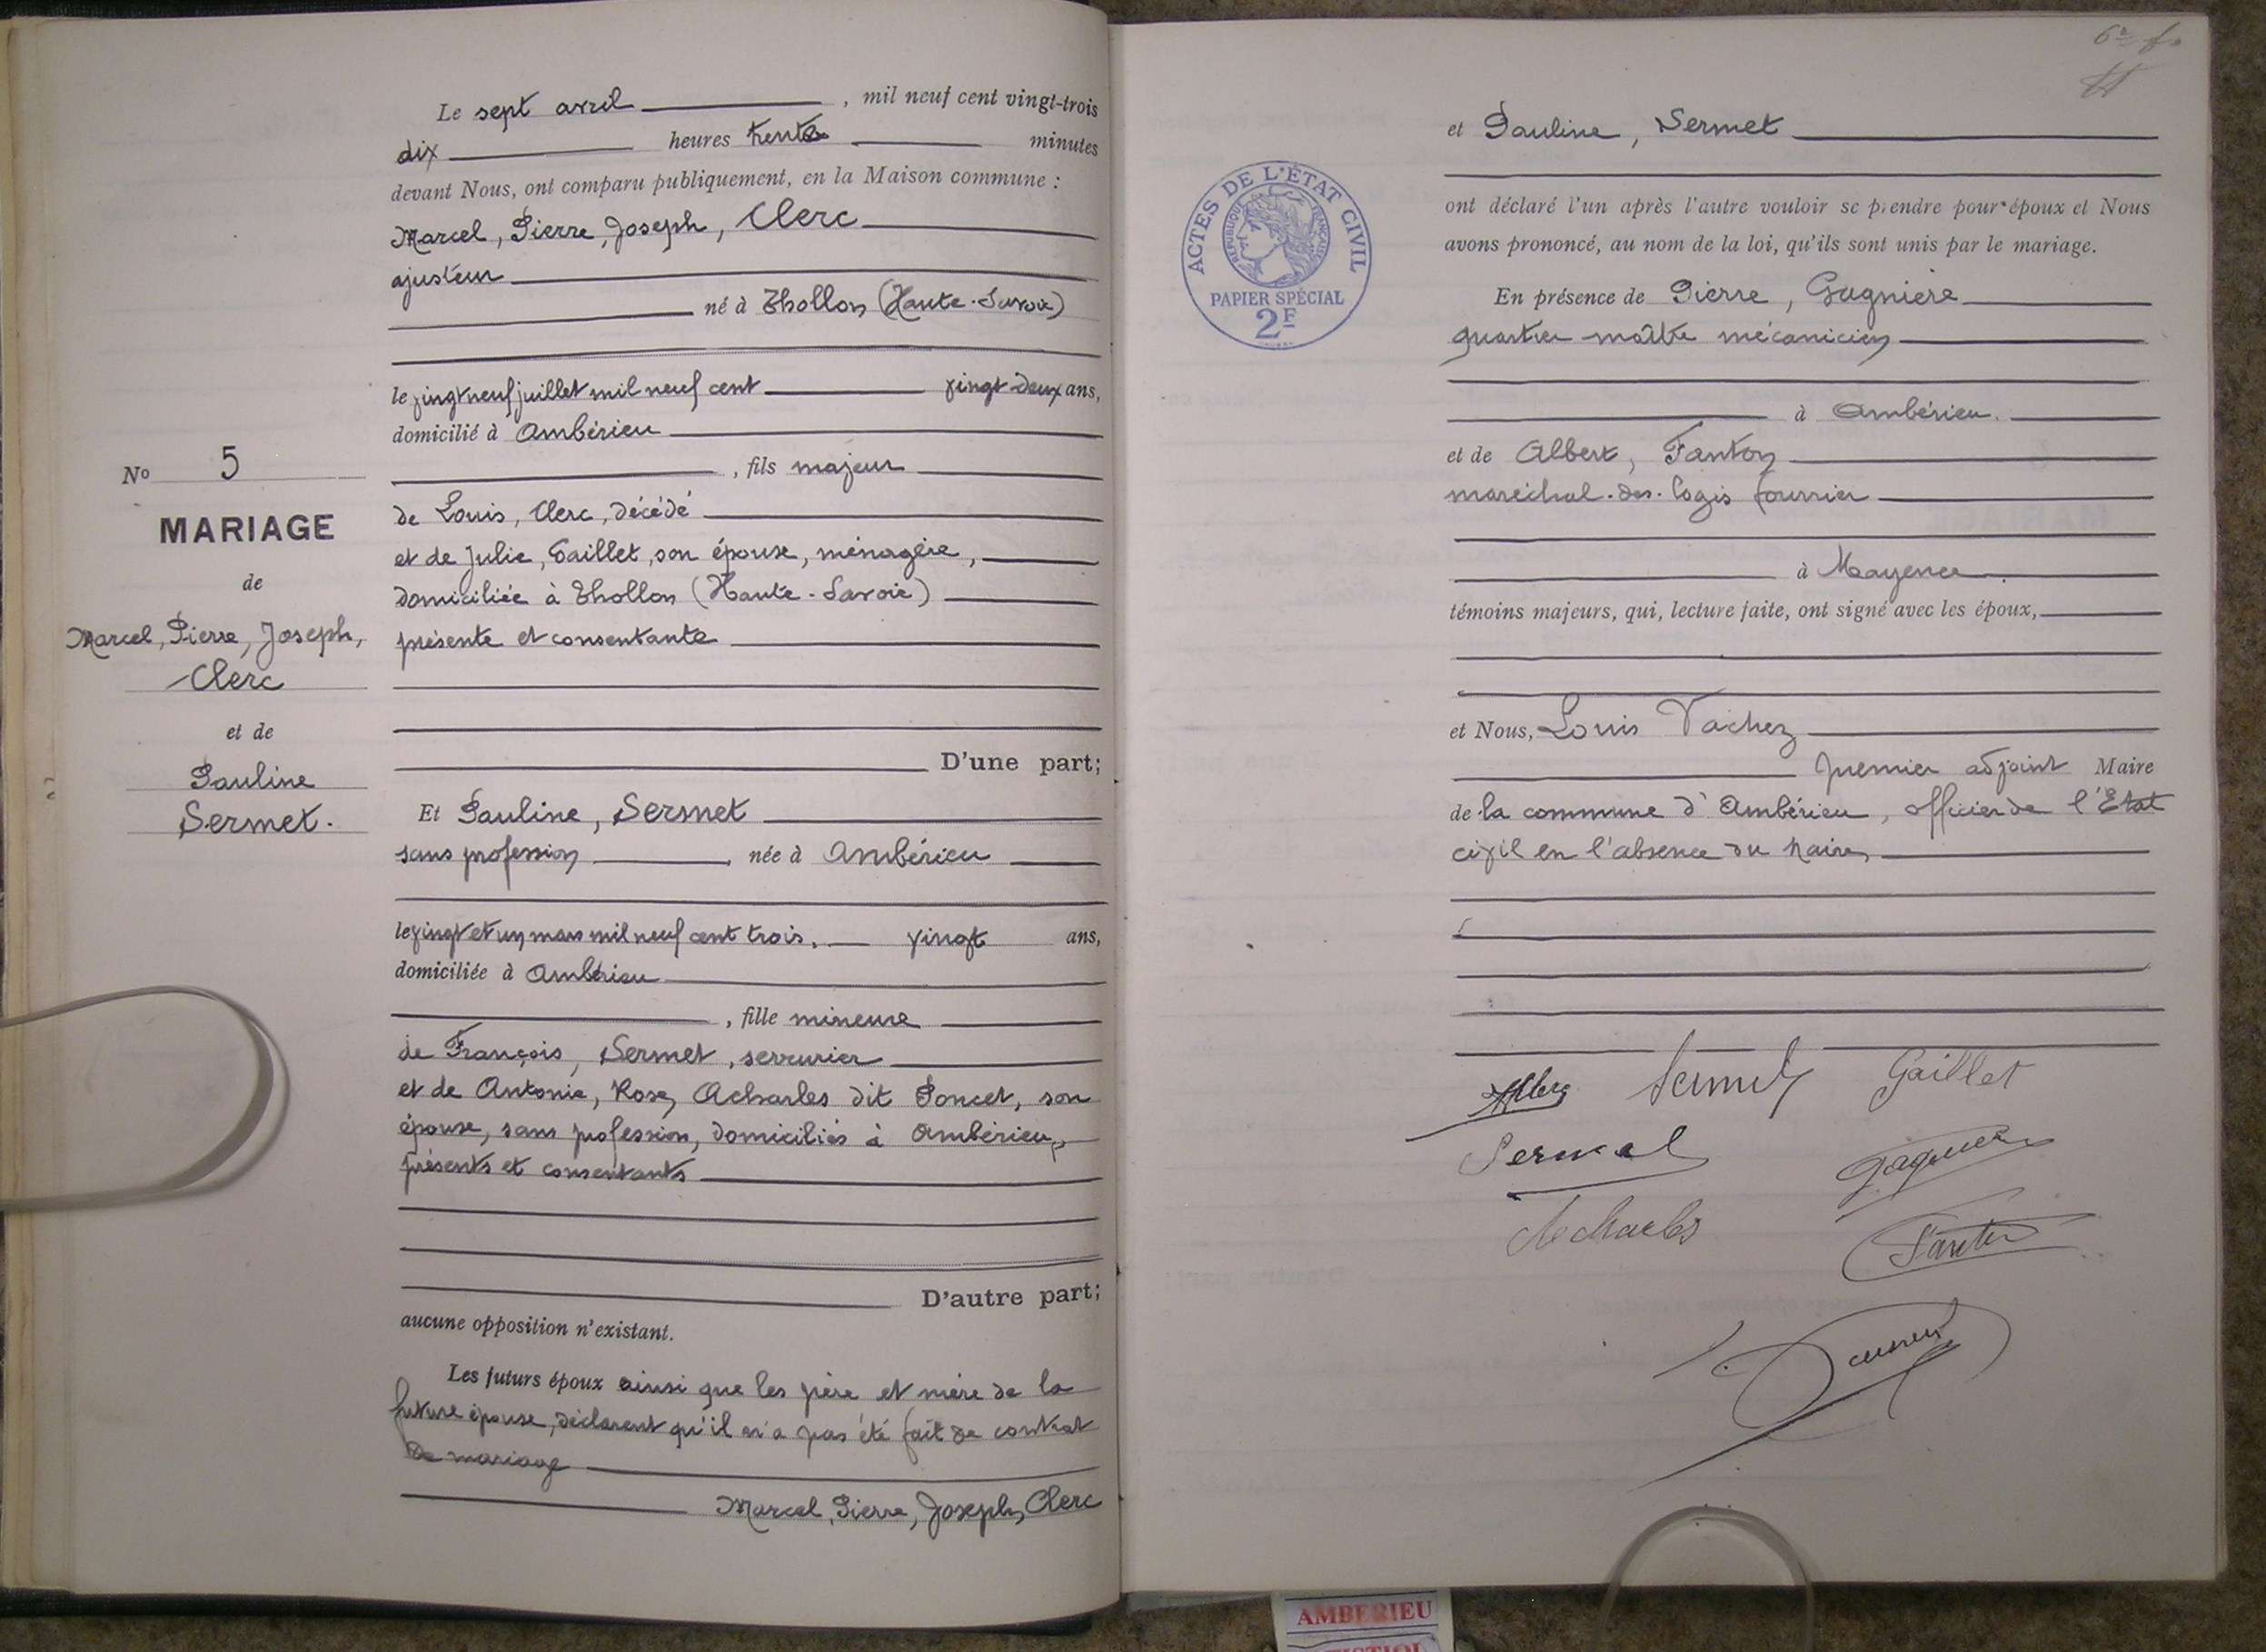 Le sept avril , mil neuf cent vingt-trois
dix heures trente minutes
devant Nous, ont comparu publiquement, en la Maison commune :
Marcel, Pierre, Joseph, Clerc
ajusteur
né à Thollon (Haute-Savoie)
le vingt neuf juillet mil neuf cent vingt-deux ans,
domicilié à Ambérieu
, fils majeur
de Louis, Clerc, décédé
et de Julie, Gaillet, son épouse, ménagère,
domiciliée à Thollon (Haute-Savoie)
présente et consentante
D'une part;
Et Pauline, Sermet
sans profession , née à Ambérieu
le vingt et un mars mil neuf cent trois, vingt ans,
domiciliée à Ambérieu
, fille mineure
de François, Sermet, serrurier
et de Antonie, Rose, Acharles dit Poncet, son
épouse, sans profession, domiciliés à Ambérieu,
présents et consentants
D'autre part;
aucune opposition n'existant.
Les futurs époux ainsi que les père et mère de la
future épouse, déclarent qu'il n'a pas été fait de contrat
de mariage
Marcel, Pierre, Joseph, Clerc
No 5
MARIAGE
de
Marcel, Pierre, Joseph,
Clerc
et de
Pauline
Sermet.
et Pauline, Sermet
ont déclaré l'un après l'autre vouloir se prendre pour époux et Nous
avons prononcé, au nom de la loi, qu'ils sont unis par le mariage.
En présence de Pierre, Gagnière
quartier maître mécanicien
à Ambérieu.
et de Albert, Fanton
maréchal-des-logis fourrier
à Mayence.
témoins majeurs, qui, lecture faite, ont signé avec les époux,
et Nous, Louis Vachez
premier adjoint Maire
de la commune d'Ambérieu, officier de l'État
civil en l'absence du Maire,
Sermet Gaillet
Sermet
Acharles
ACTES DE L'ÉTAT CIVIL
RÉPUBLIQUE FRANÇAISE
PAPIER SPÉCIAL
2F
AMBERIEU